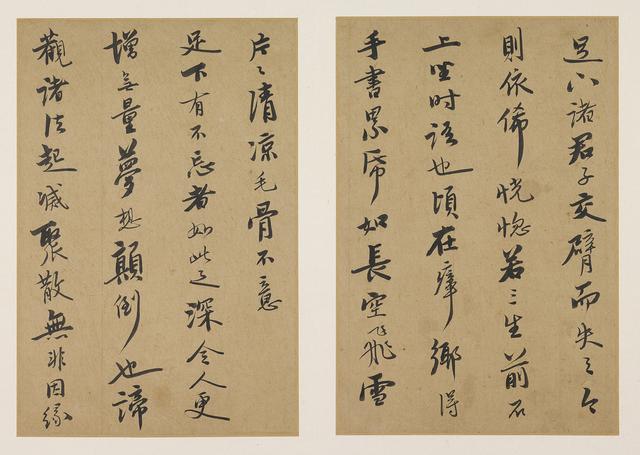 足下诸君子交臂而失之今
則依俙恍惚若三生前石
上坐时语也頃在瘴鄉得
手書累紙如長空飛雪
片〻清凉毛骨不意
足下有不忘者如此之深令人更
增無量夢想顛倒也諦
觀諸法起滅聚散無非因缘